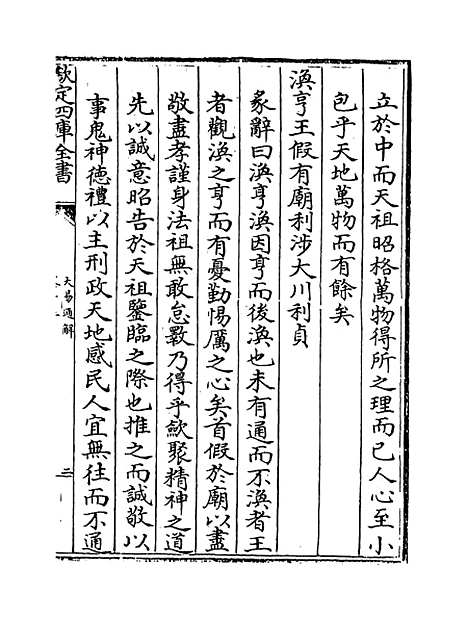 立於中而天祖昭格萬物得所之理而已人心至小
包乎天地萬物而有餘矣
渙亨王假有廟利涉大川利貞
彖辭曰渙亨渙因亨而後渙也未有通而不渙者王
者觀渙之亨而有憂勤惕厲之心矣首假於廟以盡
敬盡孝謹身法祖無敢怠斁乃得乎歛聚精神之道
先以誠意昭告於天祖鑒臨之際也推之而誠敬以
事鬼神德禮以主刑政天地感民人宜無往而不通
欽定四庫全書
大易通解
三